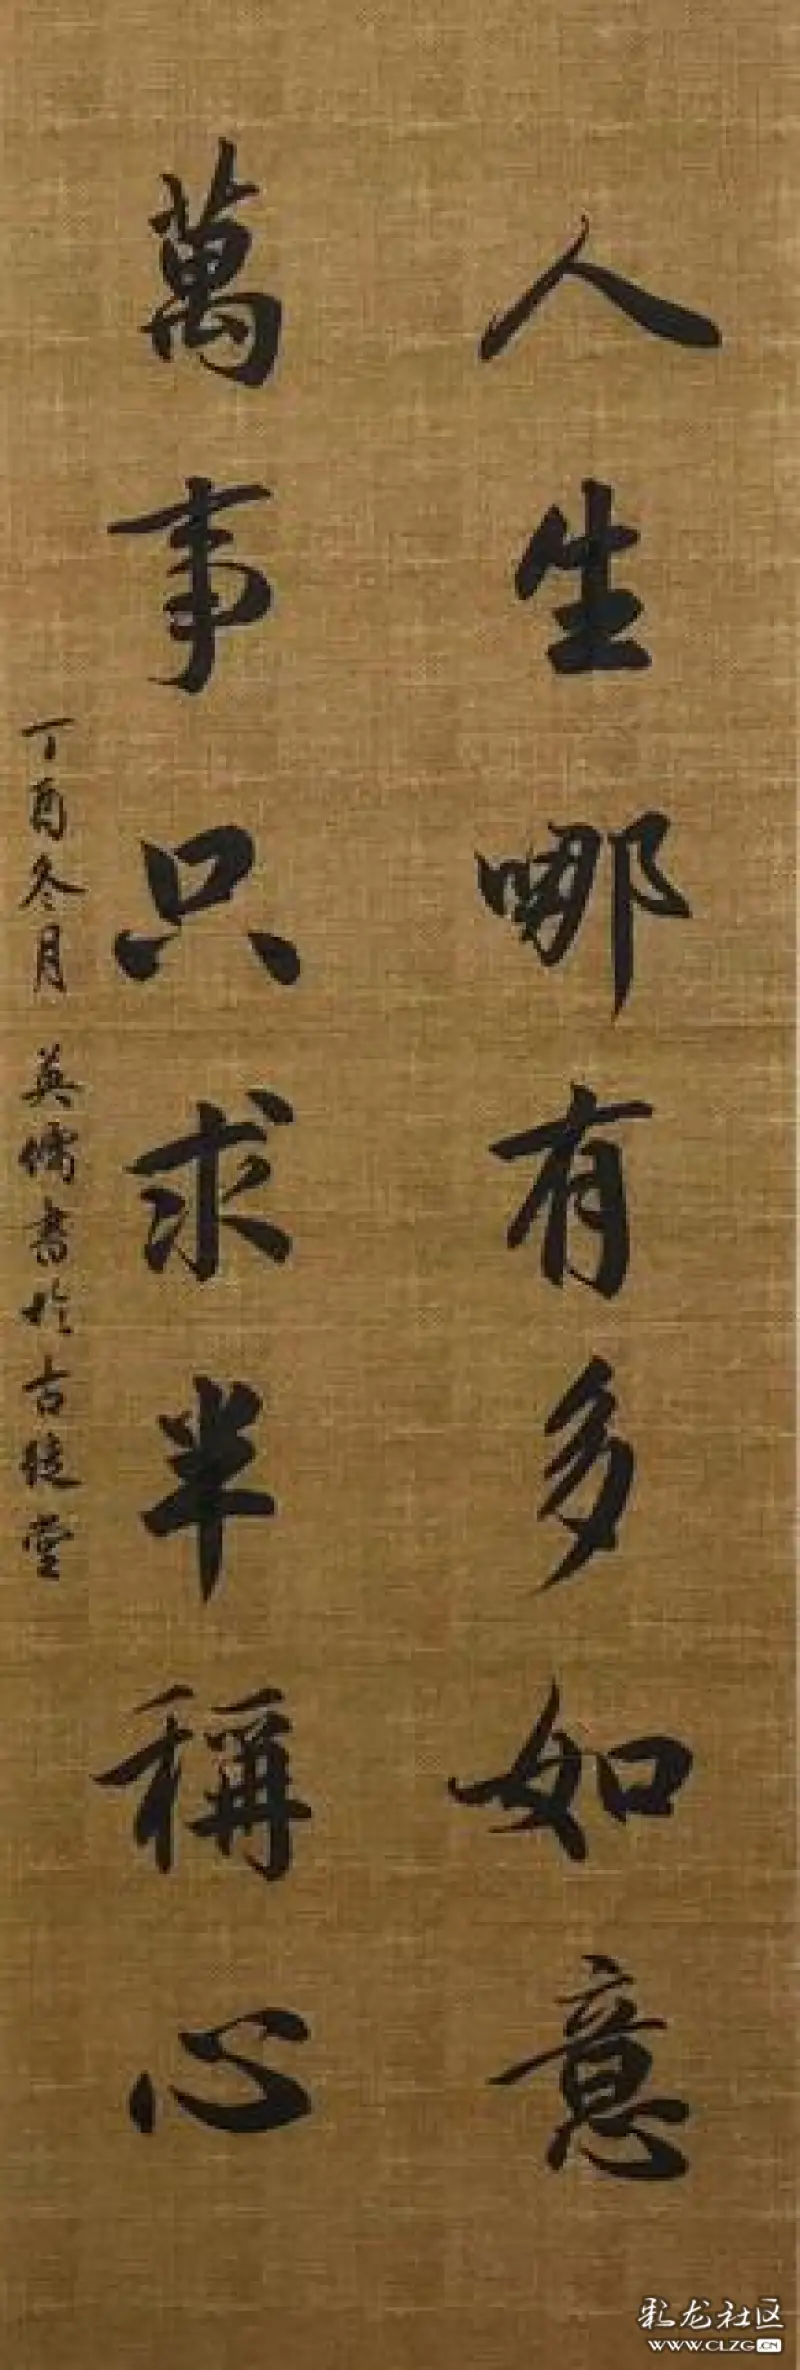 人生哪有多如意
萬事只求半稱心
丁酉冬月 英儒書於古陡堂
彩龙社区
WWW.CLZG.CN